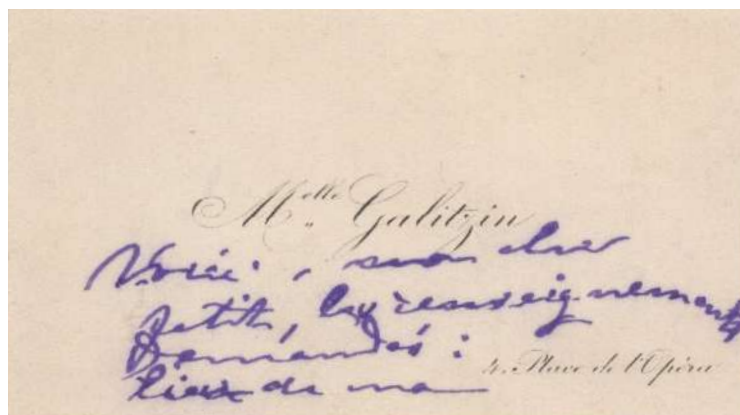 Melle Galitzin
Voici, mon cher
petit, les renseignements
demandés :
4, Place de l'Opéra
de ma